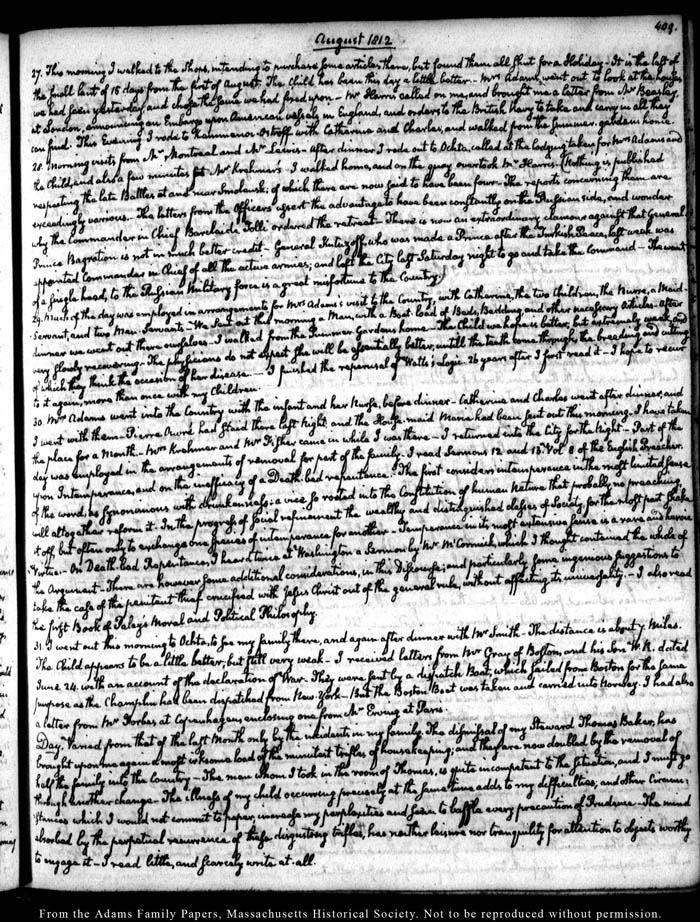 409.
August 1812
27. This morning I walked to the Shops, intending to purchase some articles there, but found them all shut for a Holiday. It is the last of
the small Lent of 15 days from the first of August. The Child has been this day a little better. Mrs Adams, went out to look at the houses
we had seen yesterday, and chose the same we had fixed upon. Mr Harris called on me, and brought me a letter from Mr Beasley
at London, announcing an Embargo upon American vessels in England, and orders to the British Navy to take and carry in all they
can find. This Evening I rode to Kammenoi-Ostroff with Catharine and Charles, and walked from the Summer-gardens home.
28. Morning visits from Mr Montreal and Mr Lewis. After dinner I rode out to Ochta, called at the Lodging taken for Mrs Adams and
the Child, and also a few minutes at Mr Krehmer's. I walked home, and on the quay overtook Mr Harris. Nothing is published
respecting the late Battles at and near Smolensk; of which there are now said to have been four. The reports concerning them are
exceedingly various. The letters from the Officers assert the advantage to have been constantly on the Russian side, and wonder
why the Commander in Chief Barclai de Tolli ordered the retreat. There is now an extraordinary clamour against that General
Prince Bagration is not in much better credit. General Kutuzoff, who was made a Prince after the Turkish Peace, last week was
appointed Commander in Chief of all the active armies; and left the City last Saturday night to go and take the Command. The want
of a single head, to the Russian Military force is a great misfortune to the Country.
29. Much of the day was employed in arrangements for Mrs Adams's visit to the Country, with Catharine, the two Children, the Nurse, a Maid-
Servant, and two Man-Servants. We sent out this morning a Man, with a Boat load of Beds, Bedding and other necessary Articles. After
dinner we went out there ourselves. I walked from the Summer Gardens home. The Child we hope is better, but extremely weak, and
very slowly recovering. The physicians do not expect she will be essentially better, until the teeth come through, the breeding and cutting
of which they think the occasion of her disease. I finished the reperusal of Watts's Logic. 26 years after I first read it. I hope to recur
to it again, more than once with my Children.
30. Mrs Adams went into the Country with the infant and her Nurse, before dinner. Catherine and Charles went after dinner, and
I went with them. Pierre had staid there last Night, and the House-maid Maria had been sent out this morning. I have taken
the place for a Month. Mrs Krehmer and Mr Fisher came in while I was there. I returned into the City for the Night. Part of the
day was employed in the arrangements of removal for part of the family. I read Sermons 12 and 13. Vol. 8 of the English Preacher.
upon Intemperance, and on the inefficacy of a Death-bed repentance. The first considers intemperance in the most limited sense
of the word, as synonimous with drunkenness; a vice so rooted in the Constitution of human Nature that probably no preaching
will altogether reform it. In the progress of social refinement the wealthy and distinguished classes of Society, for the most part shake
it off but often only to exchange one species of intemperance for another. Temperance in its most extensive sense is a rare and heroic
Virtue. On Death-bed Repentance, I heard twice at Washington a Sermon by Mr McCormick, which I thought contained the whole of
the Argument. There are however some additional considerations, in this Discourse; and particularly some ingenious suggestions to
take the case of the penitent thief crucified with Jesus Christ out of the general rule, without affecting its universality. I also read
the first Book of Paley's Moral and Political Philosophy.
31. I went out this morning to Ochta, to see my family there, and again after dinner with Mr Smith. The distance is about 7 Miles.
The Child appears to be a little better, but still very weak. I received letters from Mr Gray of Boston, and his Son W. R. dated
June 24. with an account of the declaration of War. They were sent by a dispatch Boat, which sailed from Boston for the same
purpose as the Champlin had been dispatched from New York. But the Boston Boat was taken and carried into Norway. I had also
a letter from Mr Forbes at Copenhagen, enclosing one from Mr Erving at Paris.
Day. Varied from that of the last Month only by the incidents in my family. The dismissal of my Steward Thomas Baker, has
brought upon me again a most irksome load of the minutest trifles of housekeeping; and they are now doubled by the removal of
half the family into the Country. The man whom I took in the room of Thomas, is quite incompetent to the situation, and I must go
through another change. The illness of my child occurring precisely at the same time adds to my difficulties, and other Circum-
stances which I would not commit to paper, increase my perplexities and seem to baffle every precaution of Prudence. The mind
absorbed by the perpetual recurrence of these disgusting trifles, has neither leisure nor tranquility for attention to objects worthy
to engage it. I read little, and scarcely write at all.
From the Adams Family Papers, Massachusetts Historical Society. Not to be reproduced without permission.